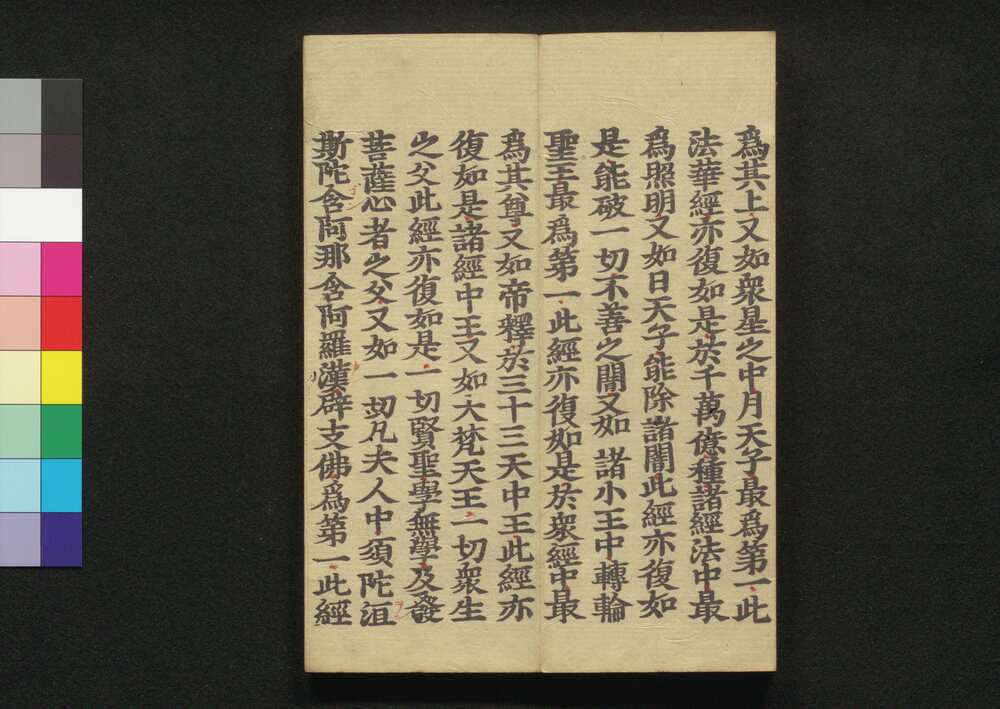 爲其上又如衆星之中月天子最爲第一此
法華經亦復如是於千萬億種諸經法中最
爲照明又如日天子能除諸闇此經亦復如
是能破一切不善之闇又如諸小王中轉輪
聖王最爲第一此經亦復如是於衆經中最
爲其尊又如帝釋於三十三天中王此經亦
復如是諸經中王又如大梵天王一切衆生
之父此經亦復如是一切賢聖學無學及發
菩薩心者之父又如一切凡夫人中須陀洹
斯陀含阿那含阿羅漢辟支佛爲第一此經